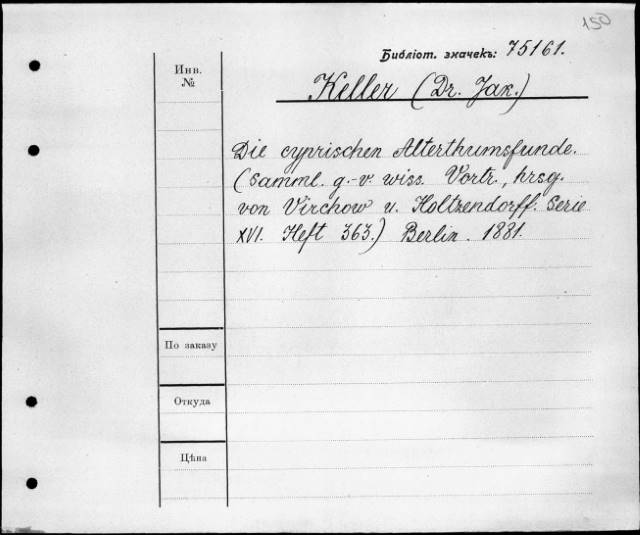 150
Библіот. значекъ: 75161.
Инв.
№
Keller (Dr. Jak.)
Die cyprischen Alterthumsfunde.
(Samml. g.-v. wiss. Vortr., hrsg.
von Virchow u. Holtzendorff. Serie
XVI. Heft 363.) Berlin. 1881.
По заказу
Откуда
Цѣна